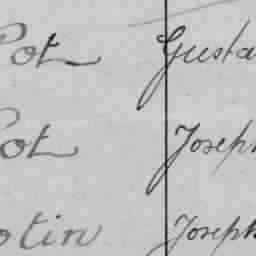 Pot Gusta
Pot Joseph
otin Joseph